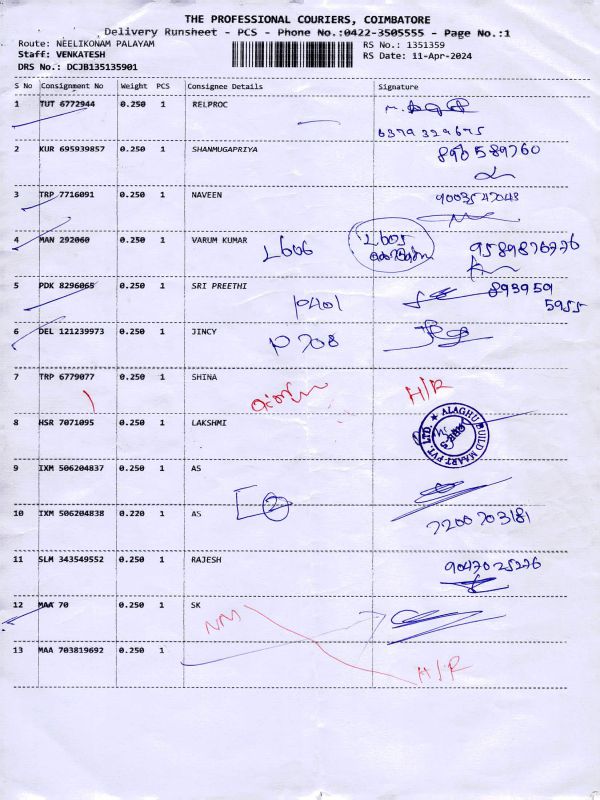 THE PROFESSIONAL COURIERS, COIMBATORE
Delivery Runsheet - PCS - Phone No.:0422-3505555 - Page No.:1
Route: NEELIKONAM PALAYAM RS No.: 1351359
Staff: VENKATESH RS Date: 11-Apr-2024
DRS No.: DCJB135135901
S No Consignment No Weight PCS Consignee Details Signature
1 TUT 6772944 0.250 1 RELPROC
6379329675
2 KUR 695939857 0.250 1 SHANMUGAPRIYA
890589760
3 TRP 7716091 0.250 1 NAVEEN 9003547043
4 MAN 292060 0.250 1 VARUM KUMAR L606 L605 9589876776
5 PDK 8296065 0.250 1 SRI PREETHI P401 893959
5955
6 DEL 121239973 0.250 1 JINCY P708
7 TRP 6779077 0.250 1 SHINA H/R
8 HSR 7071095 0.250 1 LAKSHMI ALAGHU BUILD MAART PVT. LTD.
9 IXM 506204837 0.250 1 AS
10 IXM 506204838 0.220 1 AS 2 7200703181
11 SLM 343549552 0.250 1 RAJESH 9047025276
12 MAA 70 0.250 1 SK
NM
13 MAA 703819692 0.250 1 H/R